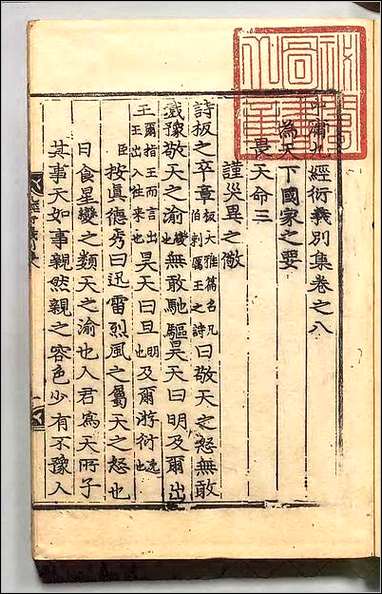 中庸九經衍義別集卷之八
為天下國家之要
畏天命三
謹災異之儆
詩板之卒章板大雅篇名凡伯刺厲王之詩曰敬天之怒無敢
戲豫敬天之渝變也無敢馳驅昊天曰明及爾出
王爾指王而言出王出入往來也昊天曰旦明也及爾游衍遠也
臣按眞德秀曰迅雷烈風之屬天之怒也
日食星變之類天之渝也人君爲天所子
其事天如事親然親之容色少有不豫人